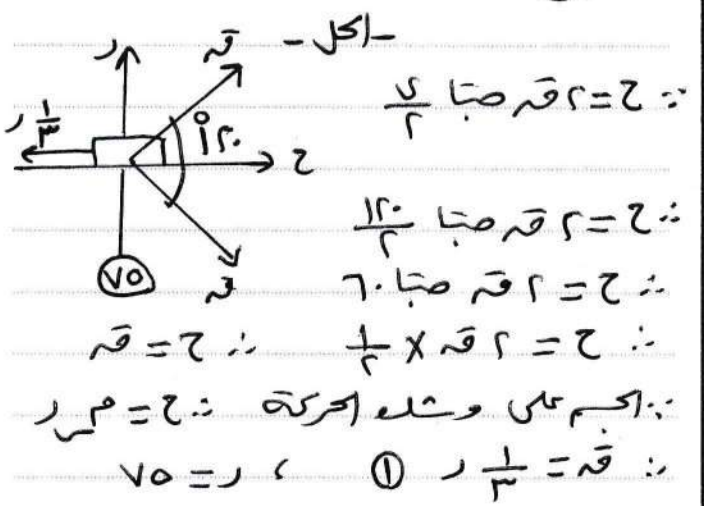 - الحل -
ر
قَ
١/٣ ر
١٢٠°
ح
٧٥
قَ
∵ ح = ٢ قَ جتا ى/٢
∴ ح = ٢ قَ جتا ١٢٠/٢
∴ ح = ٢ قَ جتا ٦٠
∴ ح = ٢ قَ × ١/٢ ∴ ح = قَ
∵ الجسم على وشك الحركة ∴ ح = م س ر
∴ قَ = ١/٣ ر ① ، ر = ٧٥